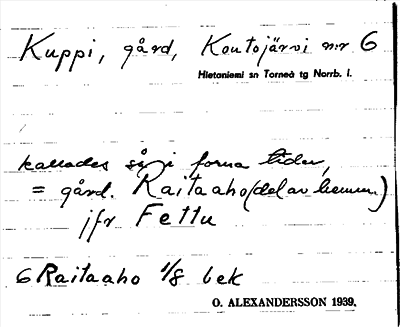 Kuppi, gård, Koutojärvi n:r 6
Hietaniemi sn Torneå tg Norrb. l.
kallades så i forna tider,
= gård. Raitaaho (del av hemm.)
jfr Fettu
6 Raitaaho 1/8 bek
O. ALEXANDERSSON 1939.